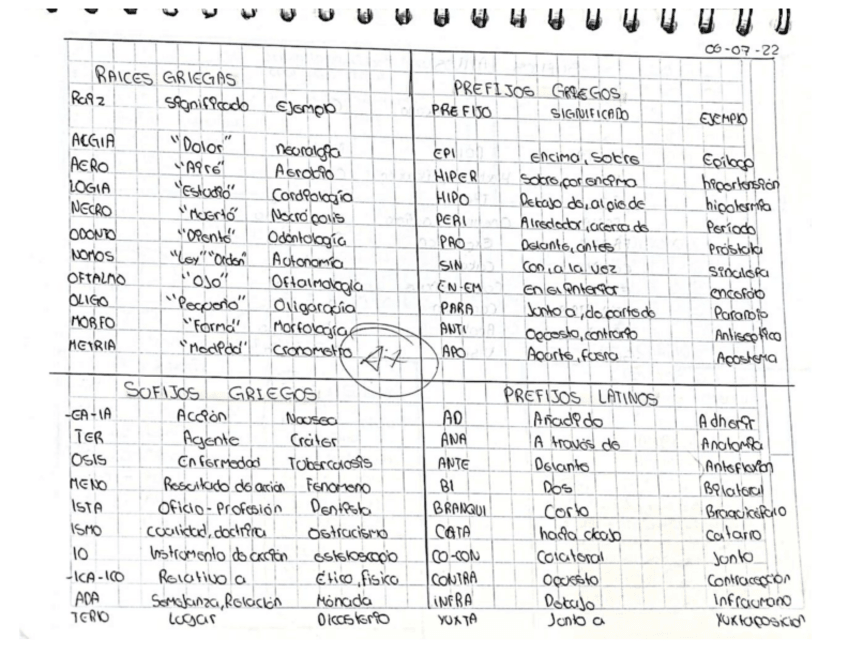 06-07-22
RAICES GRIEGAS
Raiz Significado Ejemplo
ACGIA "Dolor" neuralgia
AERO "Aire" Aerobio
LOGIA "Estudio" Cardiología
NECRO "Muerto" Necrópolis
ODONTO "Diente" Odontología
NOMOS "Ley" "Orden" Autonomía
OFTALMO "Ojo" Oftalmología
OLIGO "Pequeño" Oligarquía
MORFO "Forma" Morfología
METRIA "Medida" Cronometro
A+
PREFIJOS GRIEGOS
PREFIJO SIGNIFICADO EJEMPLO
EPI encima, sobre Epílogo
HIPER Sobre, por encima hipertensión
HIPO Debajo de, al pie de hipotermia
PERI Alrededor, acerca de Período
PRO Delante, antes Próstata
SIN Con, a la vez Sinalefa
EN-EM En el interior encefalo
PARA Junto a, de parte de Paranoia
ANTI Opuesto, contrario Antiséptico
APO Aparte, fuera Apostema
SUFIJOS GRIEGOS
-EA-IA Acción Nausea
TER Agente Cráter
OSIS Enfermedad Tuberculosis
MENO Resultado de acción Fenomeno
ISTA Oficio-Profesión Dentista
ISMO cualidad, doctrina Ostracismo
IO Instrumento de acción estetoscopio
-ICA-ICO Relativo a Ético, físico
ADA Semejanza, Relación Mónada
TERIO Lugar Dicasterio
PREFIJOS LATINOS
AD Añadido Adherir
ANA A través de Anatomía
ANTE Delante Anteflexión
BI Dos Bilateral
BRANQUI Corto Braquicéfalo
CATA hacia abajo Catarro
CO-CON Colateral Junto
CONTRA Opuesto Contracepción
INFRA Debajo Infrahumano
YUXTA Junto a Yuxtaposicion